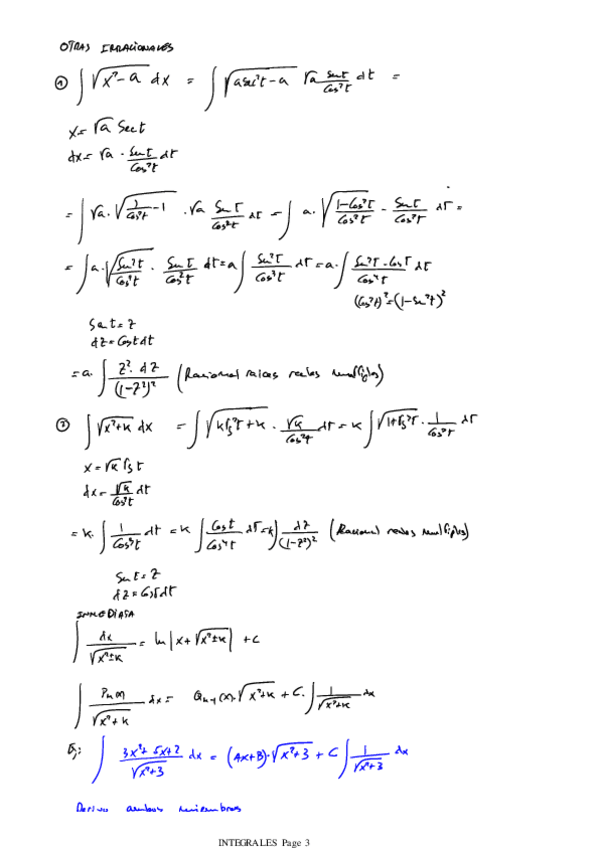 OTRAS IRRACIONALES
① ∫ √(x²-a) dx = ∫ √(a sec²t - a) √a (Sen t / Cos²t) dt =
x = √a Sec t
dx = √a · (Sen t / Cos²t) dt
= ∫ √a · √(1/Cos²t - 1) · √a (Sen t / Cos²t) dt = ∫ a · √((1-Cos²t)/Cos²t) · (Sen t / Cos²t) dt =
= ∫ a · √(Sen²t / Cos²t) · (Sen t / Cos²t) dt = a ∫ (Sen²t / Cos³t) dt = a · ∫ (Sen²t · Cos t / Cos⁴t) dt
(Cos²t)² = (1 - Sen²t)²
Sen t = z
dz = Cos t dt
= a · ∫ (z² · dz) / (1-z²)² (Racional raices reales multiples)
② ∫ √(x²+k) dx = ∫ √(k tg²t + k) · (√k / Cos²t) dt = k ∫ √(1+tg²t) · (1 / Cos²t) dt
x = √k tg t
dx = (√k / Cos²t) dt
= k · ∫ (1 / Cos³t) dt = k ∫ (Cos t / Cos⁴t) dt = k ∫ dz / (1-z²)² (Racional reales multiples)
Sen t = z
dz = Cos t dt
INMEDIATA
∫ dx / √(x²±k) = ln |x + √(x²±k)| + C
∫ Pn(x) / √(x²+k) dx = Qn-1(x) · √(x²+k) + C · ∫ 1 / √(x²+k) dx
Ej: ∫ (3x²+5x+2) / √(x²+3) dx = (Ax+B) · √(x²+3) + C ∫ 1 / √(x²+3) dx
Derivo ambos miembros
INTEGRALES Page 3